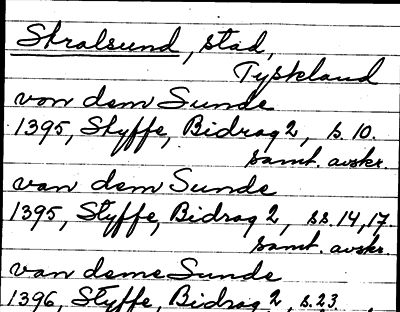 Stralsund, stad,
Tyskland
von dem Sunde
1395, Styffe, Bidrag 2, s. 10.
samt. avskr.
van dem Sunde
1395, Styffe, Bidrag 2, ss. 14, 17.
samt. avskr.
van deme Sunde
1396, Styffe, Bidrag 2, s. 23